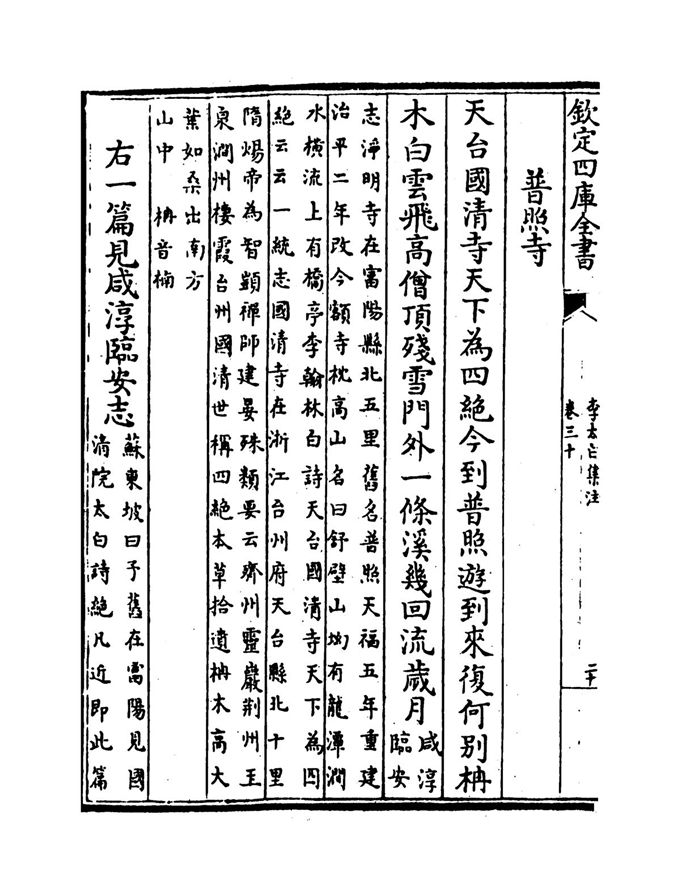 欽定四庫全書
李太白集注
卷三十
普照寺
天台國清寺天下為四絕今到普照遊到來復何別柟
木白雲飛高僧頂殘雪門外一條溪幾回流歲月
咸淳
臨安
志淨明寺在富陽縣北五里舊名普照天福五年重建
治平二年改今額寺枕高山名曰舒壁山㘭有龍潭澗
水橫流上有橋亭李翰林白詩天台國清寺天下為四
絕云云一統志國清寺在浙江台州府天台縣北十里
隋煬帝為智顗禪師建晏殊類要云齊州靈巖荆州玉
泉潤州棲霞台州國清世稱四絕本草拾遺柟木高大
葉如桑出南方
山中 柟音楠
右一篇見咸淳臨安志
蘇東坡曰予舊在富陽見國
清院太白詩絕凡近即此篇